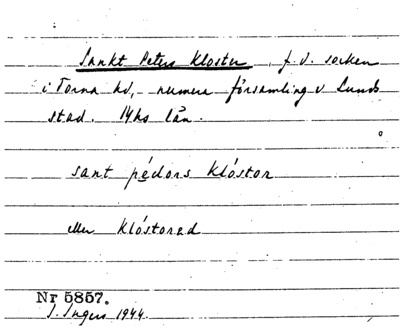 Sankt Peters Kloster, f.d. socken
i Torna hd, numera församling v Lunds
stad. Mhs län.
sant pédors klóstor
eller klóstored
Nr 5857.
I. Ingers 1944.